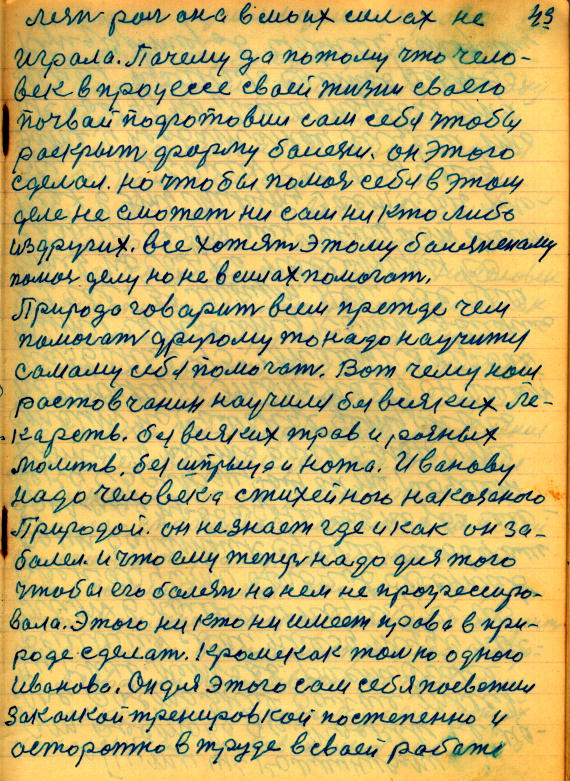 лезн рол она в моих силах не 49
играла. Пачему да потому что чело-
век в процессе сваей жизни сваего
почвай подготовил сам себя чтобы
раскрыт форму балезни. он этого
сделал. но чтобы помоч себе в этом
деле не сможет ни сам ни кто либо
из других. все хотят этому балезненаму
помоч делу но не в силах помогат.
Природа говарит всем прежде чем
помогат другому то надо научится
самаму себе помогат. Вот чему наш
растовчанин научился без всяких ле-
карств. без всяких трав и разных
молитв, без шприца и ножа. Иванову
надо человека стихейного наказаного
Природой. он не знает где и как он за-
балел. и что ему тепер надо для того
чтобы его балезн на нем не прогрессиро-
вала. Этого ни кто ни имеет права в при-
роде сделат. Кроме как толко одного
Иванова. Он для этого сам себя посветил
закалкой тренировкой постепенно и
осторожно в труде в сваей работе